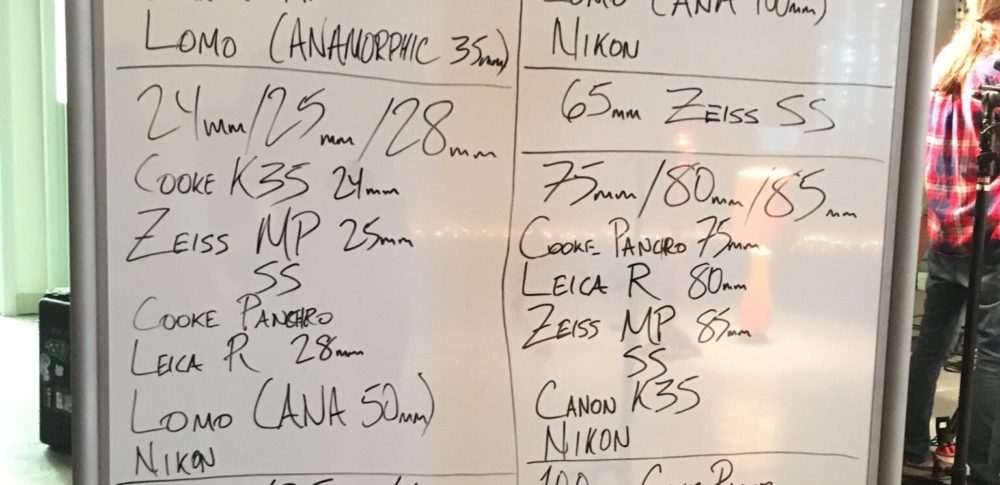 LOMO (ANAMORPHIC 35mm)
24mm/25mm/28mm
COOKE K35 24mm
ZEISS MP 25mm
SS
COOKE PANCHRO
LEICA R 28mm
LOMO (ANA 50mm)
NIKON
LOMO (ANA 100mm)
NIKON
65mm ZEISS SS
75mm/80mm/85mm
COOKE PANCRO 75mm
LEICA R 80mm
ZEISS MP 85mm
SS
CANON K35
NIKON